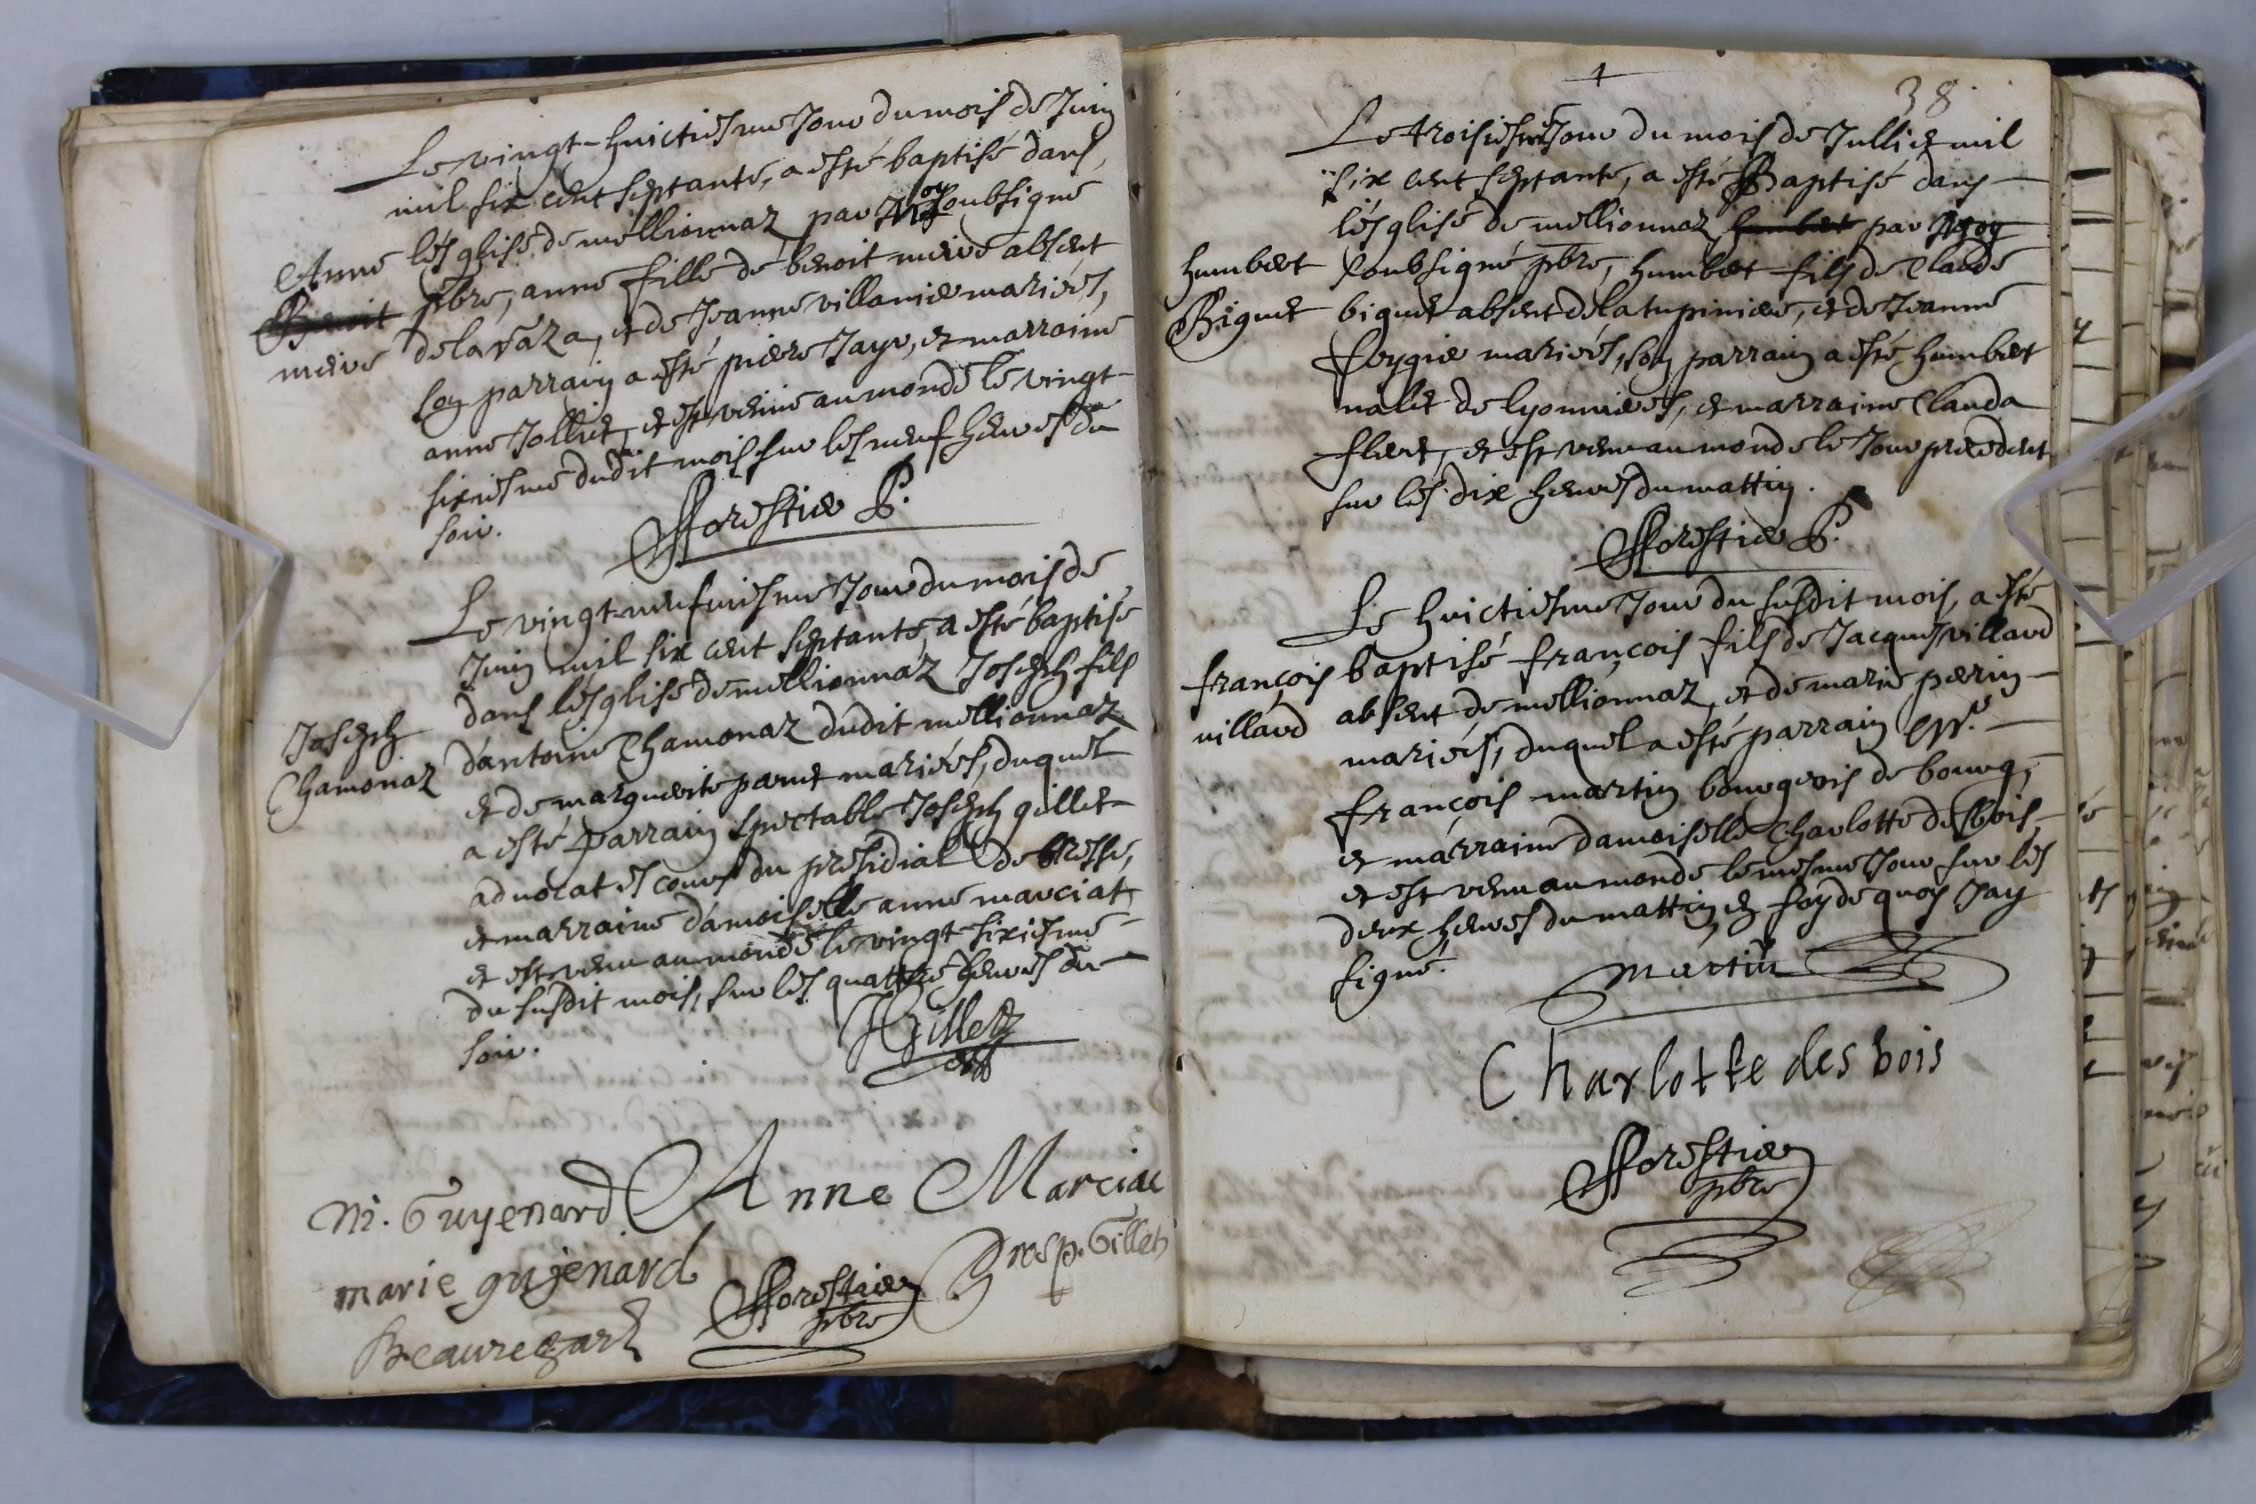 Le vingt-huictiesme Jour du mois de Juin
mil six cent septante, a esté baptisé dans
lésglise de mellionnaz par Moy soubsigné
Anne
Benoit
meivé
pbre, anne fille de benoit meive absent
de la vaza, et de Jeanne villanier mariés,
son parrain a esté pierre Jayr, et marraine
anne Jolliet, et est venue au monde le vingt
sixiesme dudit mois sur les neuf heures du
soir.
fforestier P.
Le vingt-neufviesme Jour du mois de
Juin mil six cent septante, a esté baptisé
dans lésglise de mellionnaz Joseph fils
Joseph
Chamonaz
d'antoine Chamonaz dudit mellionnaz
et de marguerite perret mariés, duquel
a esté parrain spectable Joseph gillet
advocat es cours du présidial de bresse,
et marraine damoiselle anne marciat
et est venu au monde le vingt sixiesme
du susdit mois, sur les quattre heures du
soir.
JGillet
M. Guyenard Anne Marciat
marie gujenard
Prosp. Gillet
fforestier
pbre
Beauregard
38
Le troisiesme Jour du mois de Julliet mil
six cent septante, a esté Baptisé dans
lésglise de mellionnaz humbert par Moy
humbert
Biguet
soubsigné pbre, humbert fils de Claude
biguet absent de la tupiniere, et de Jeanne
feygie mariés, son parrain a esté humbert
nalet de lyonnieres, et marraine Clauda
flert, et est venu au monde le Jour précedent
sur les dix heures du mattin.
fforestier P.
Le huictiesme Jour du susdit mois, a esté
françois
villard
baptisé françois fils de Jacques villard
absent de mellionnaz, et de marie perrin
mariés, duquel a esté parrain
françois martin bourgeois de bourg,
et marraine damoiselle Charlotte desbois
et est venu au monde le mesme Jour sur les
deux heures du mattin, en foy de quoy Jay
signé.
Martin
Charlotte des bois
fforestier
pbre